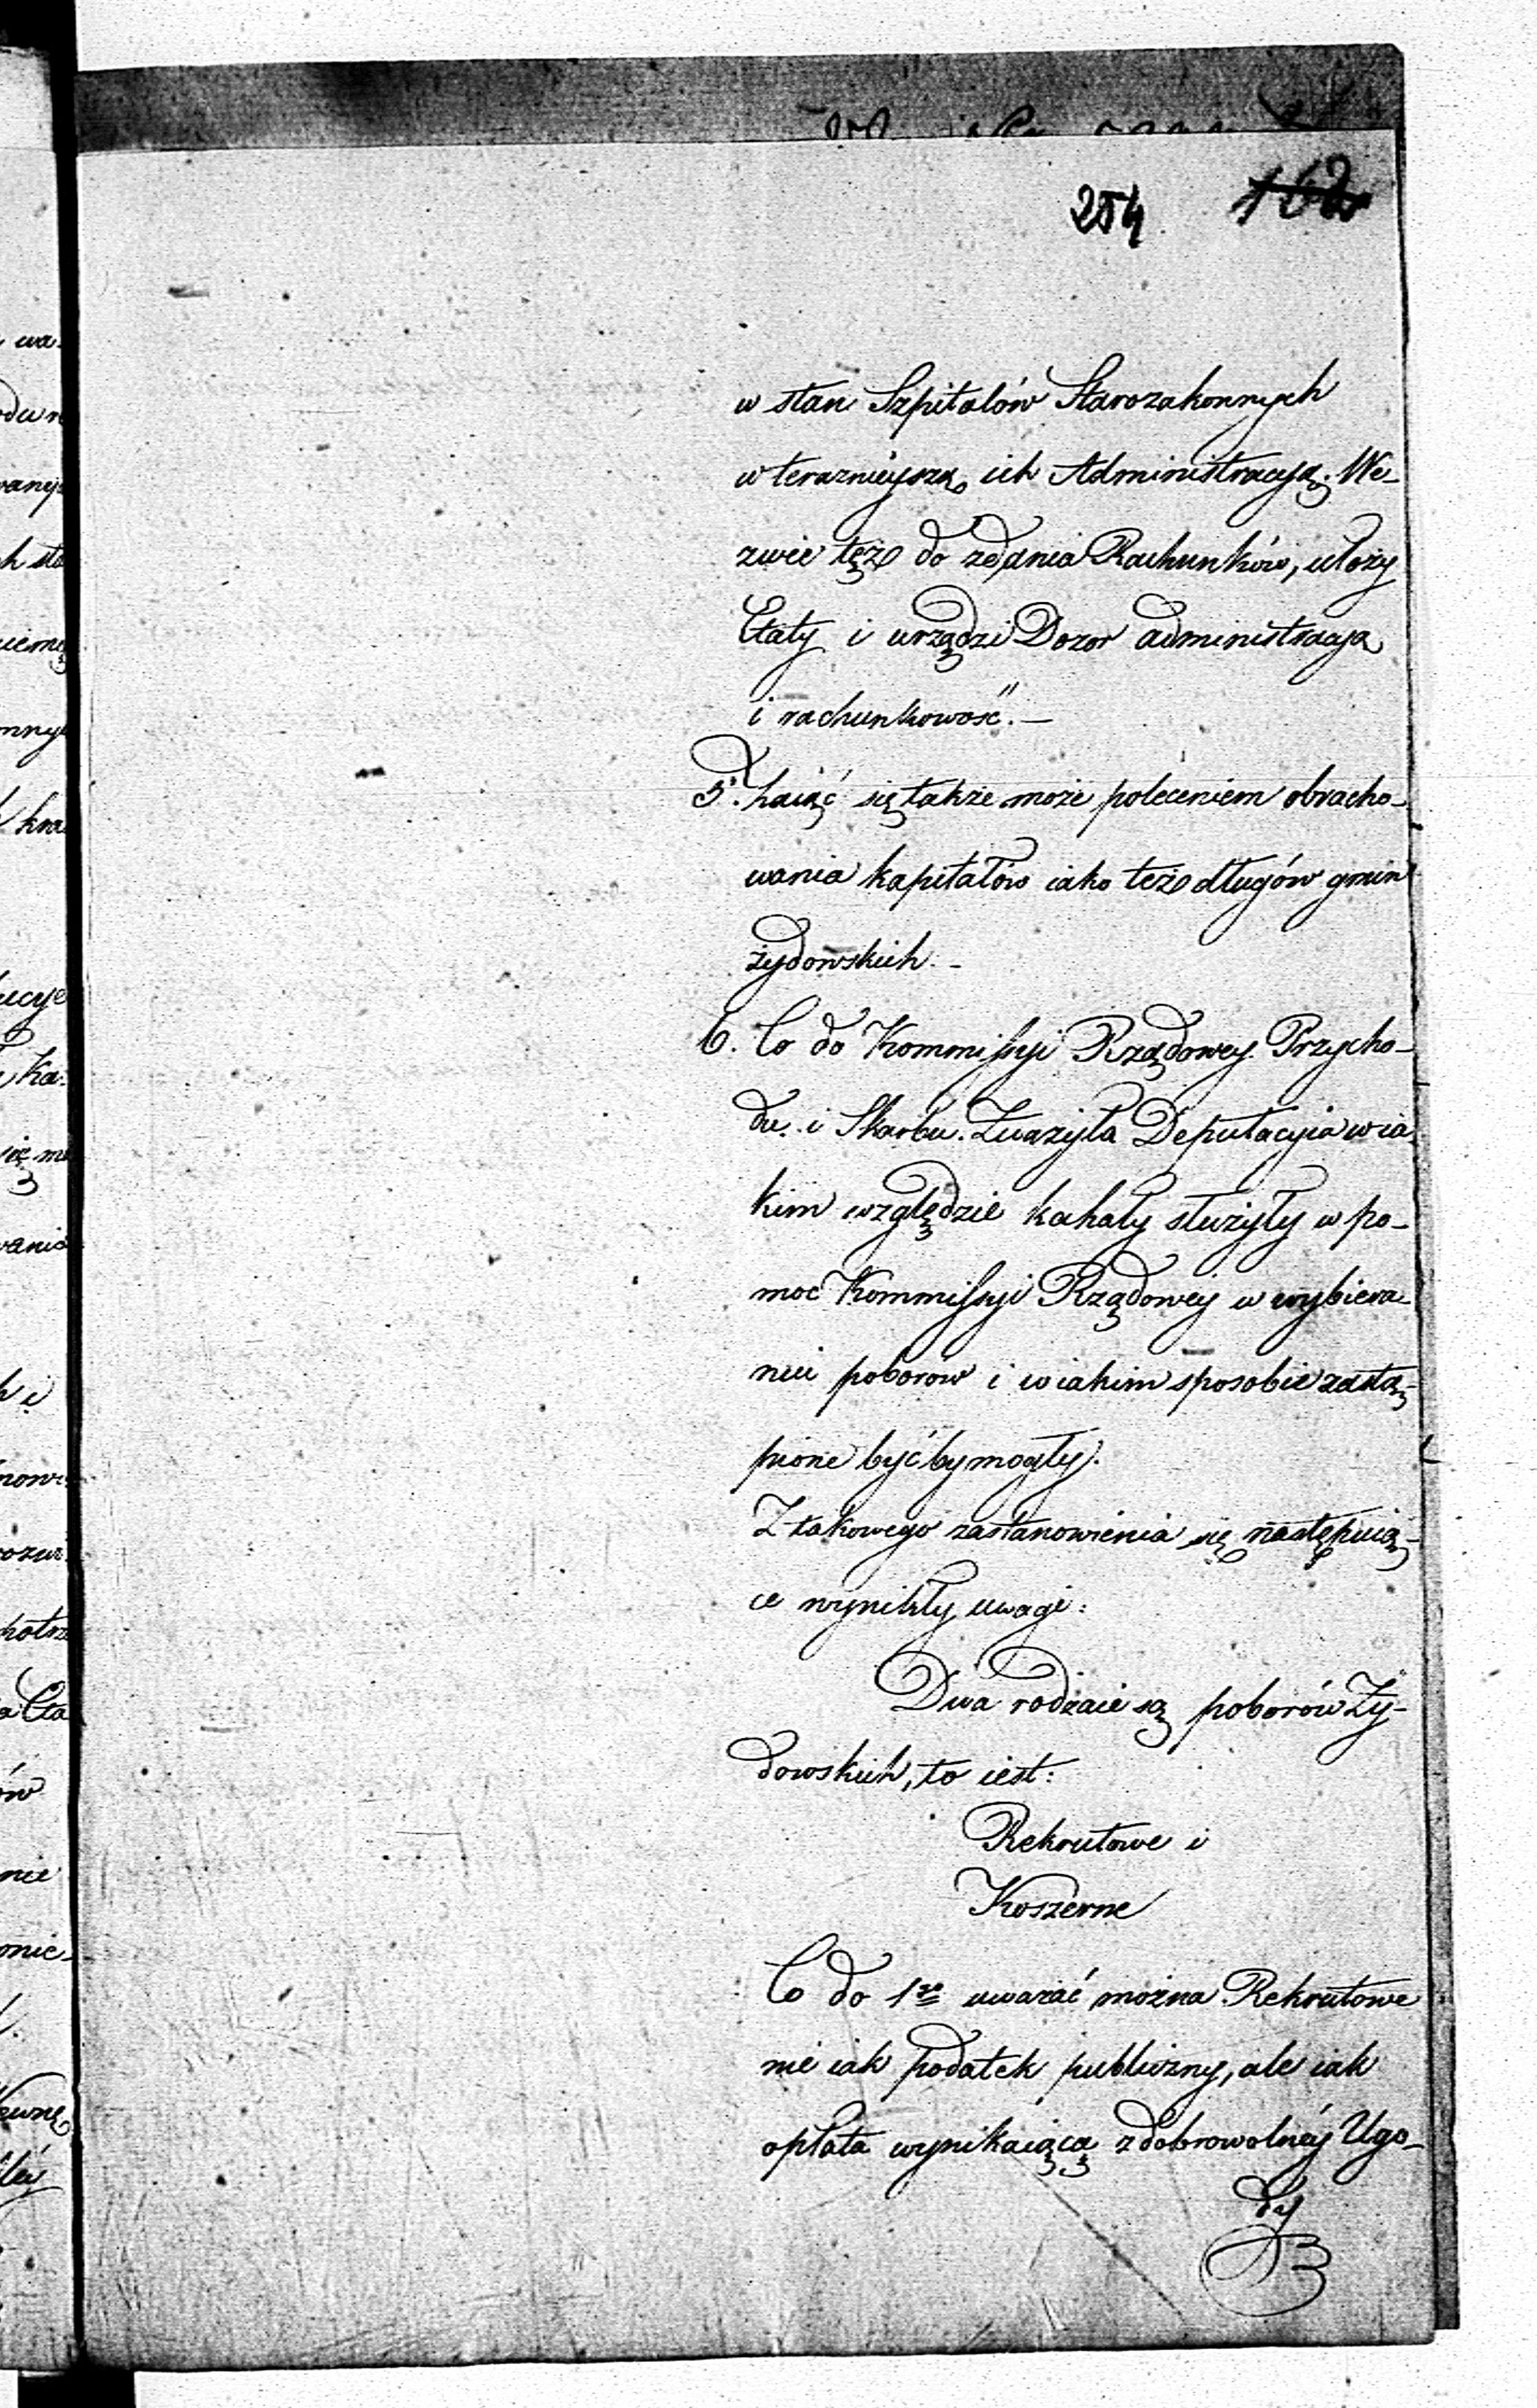 254 162
w stan Szpitalów Starozakonnych
w teraznieyszą ich Administracyą. We-
zwie też do zdania Rachunków, ułoży
Etaty i urządzi Dozor administracyą
i rachunkowość".—
5. Zaiąć się także może poleceniem obracho-
wania kapitałów iako też długów gmin
żydowskich.-
6. Co do Kommissyi Rządowey Przycho-
du i Skarbu. Zważyła Deputacyia w ia
kim względzie kahały służyły w po-
moc Kommissyi Rządowey w wybiera-
niu poborów i w iakim sposobie zastą-
pione być by mogły.
Z takowego zastanowienia się następuią-
ce wynikły uwagi:
Dwa rodzaie są poborów Ży-
dowskich, to iest:
Rekrutowe i
Koszerne
Co do 1go uważać można Rekrutowe
nie iak podatek publiczny, ale iak
opłata wynikaiącą z dobrowolney Ugo-
dy